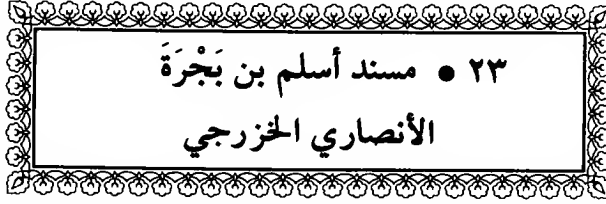 ٢٣ • مسند أسلم بن بَجْرَةَ
الأنصاري الخزرجي